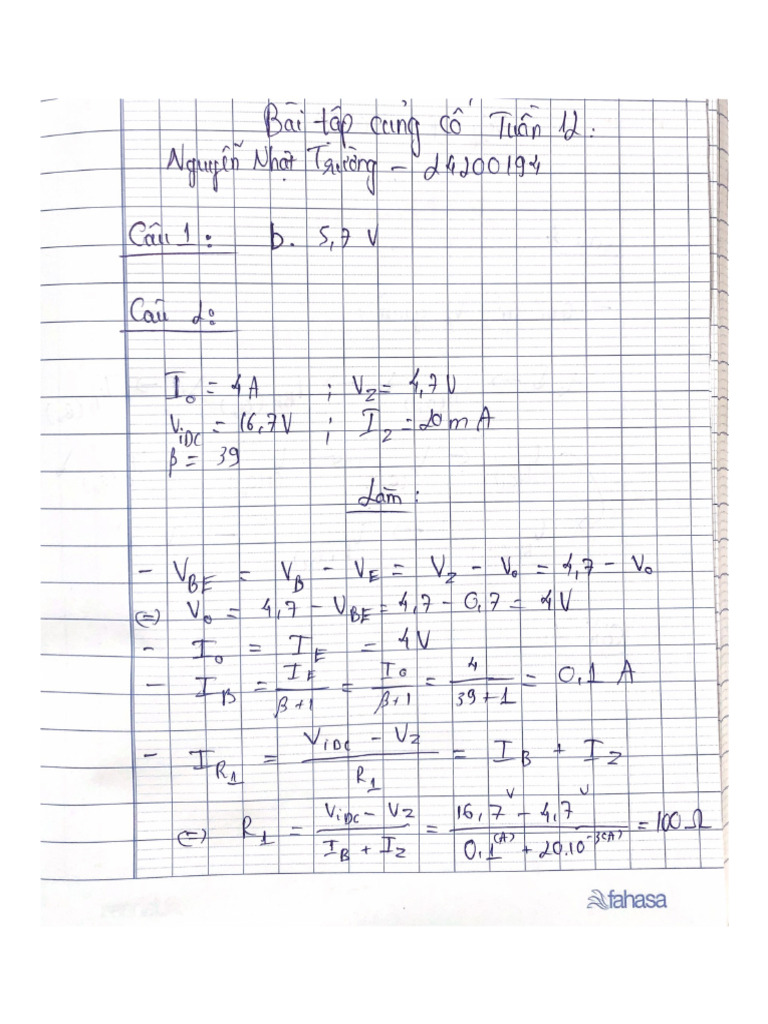 Bài tập củng cố Tuần 12:
Nguyễn Nhật Trường - 24200194
Câu 1: b. 5,7 V
Câu 2:
I₀ = 4A ; V_Z = 4,7V
V_iDC = 16,7V ; I_Z = 20mA
β = 39
Làm:
- V_BE = V_B - V_E = V_Z - V₀ = 4,7 - V₀
(=) V₀ = 4,7 - V_BE = 4,7 - 0,7 = 4V
- I₀ = I_E = 4V
- I_B = I_E/(β+1) = I₀/(β+1) = 4/(39+1) = 0,1 A
- I_R₁ = (V_iDC - V_Z)/R₁ = I_B + I_Z
(=) R₁ = (V_iDC - V_Z)/(I_B + I_Z) = (16,7^V - 4,7^V)/(0,1^(A) + 20.10^-3(A)) = 100Ω
fahasa